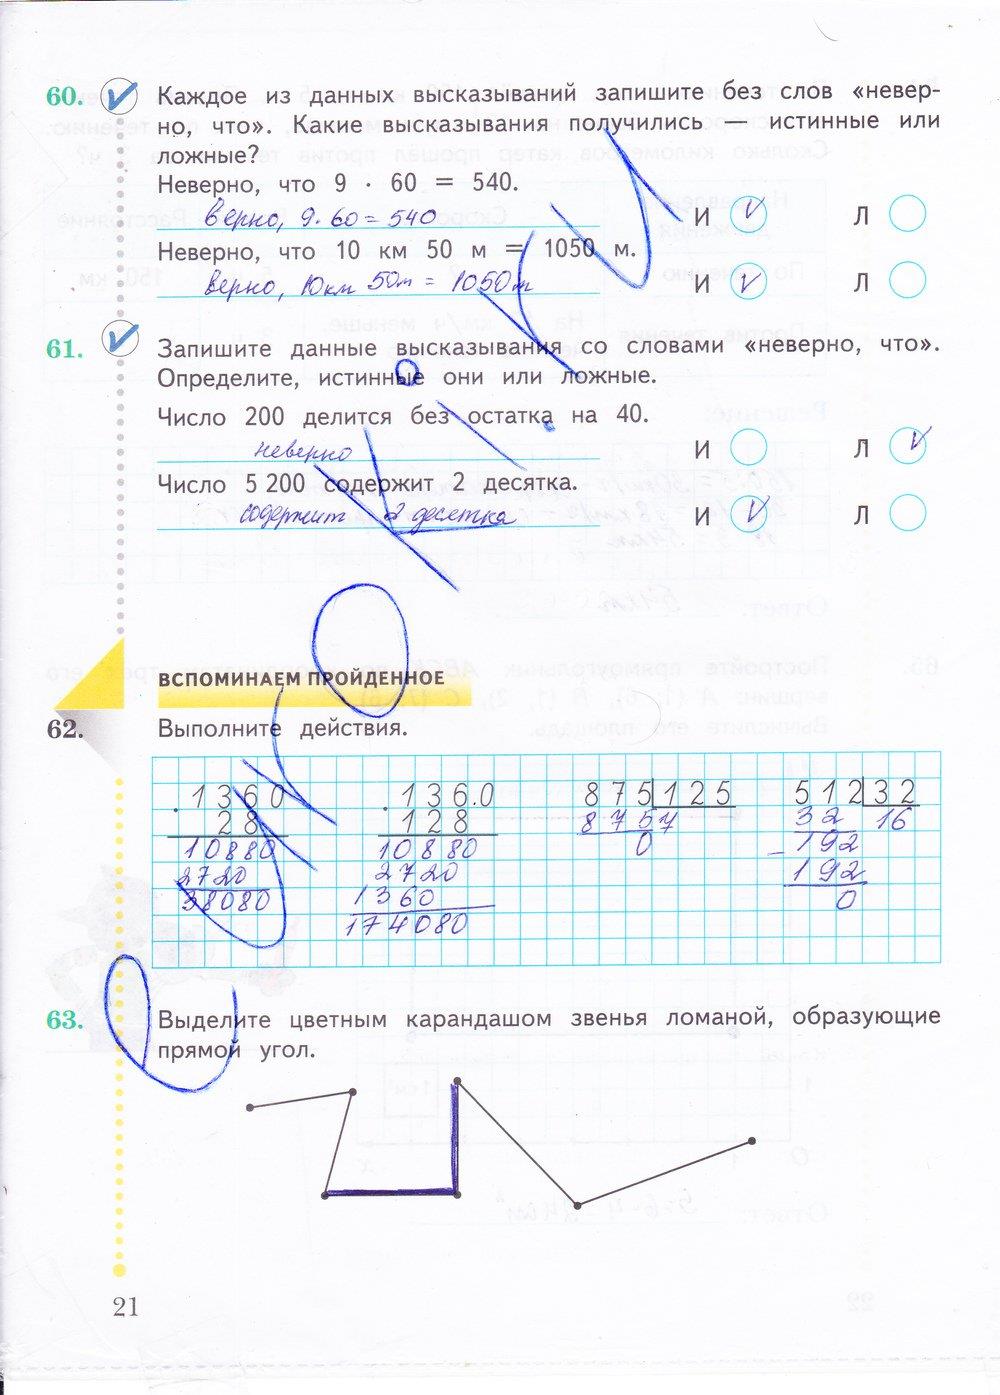 60. Каждое из данных высказываний запишите без слов «невер-
но, что». Какие высказывания получились — истинные или
ложные?
Неверно, что 9 · 60 = 540.
верно, 9·60=540 И V Л
Неверно, что 10 км 50 м = 1050 м.
верно, 10км 50м = 1050м И V Л
61. Запишите данные высказывания со словами «неверно, что».
Определите, истинные они или ложные.
Число 200 делится без остатка на 40.
неверно И Л V
Число 5 200 содержит 2 десятка.
содержит 2 десятка И V Л
ВСПОМИНАЕМ ПРОЙДЕННОЕ
62. Выполните действия.
. 1360 . 136.0 875 125 512 32
28 128 875 7 32 16
10880 10880 0 - 192
2720 2720 192
38080 1360 0
174080
63. Выделите цветным карандашом звенья ломаной, образующие
прямой угол.
21